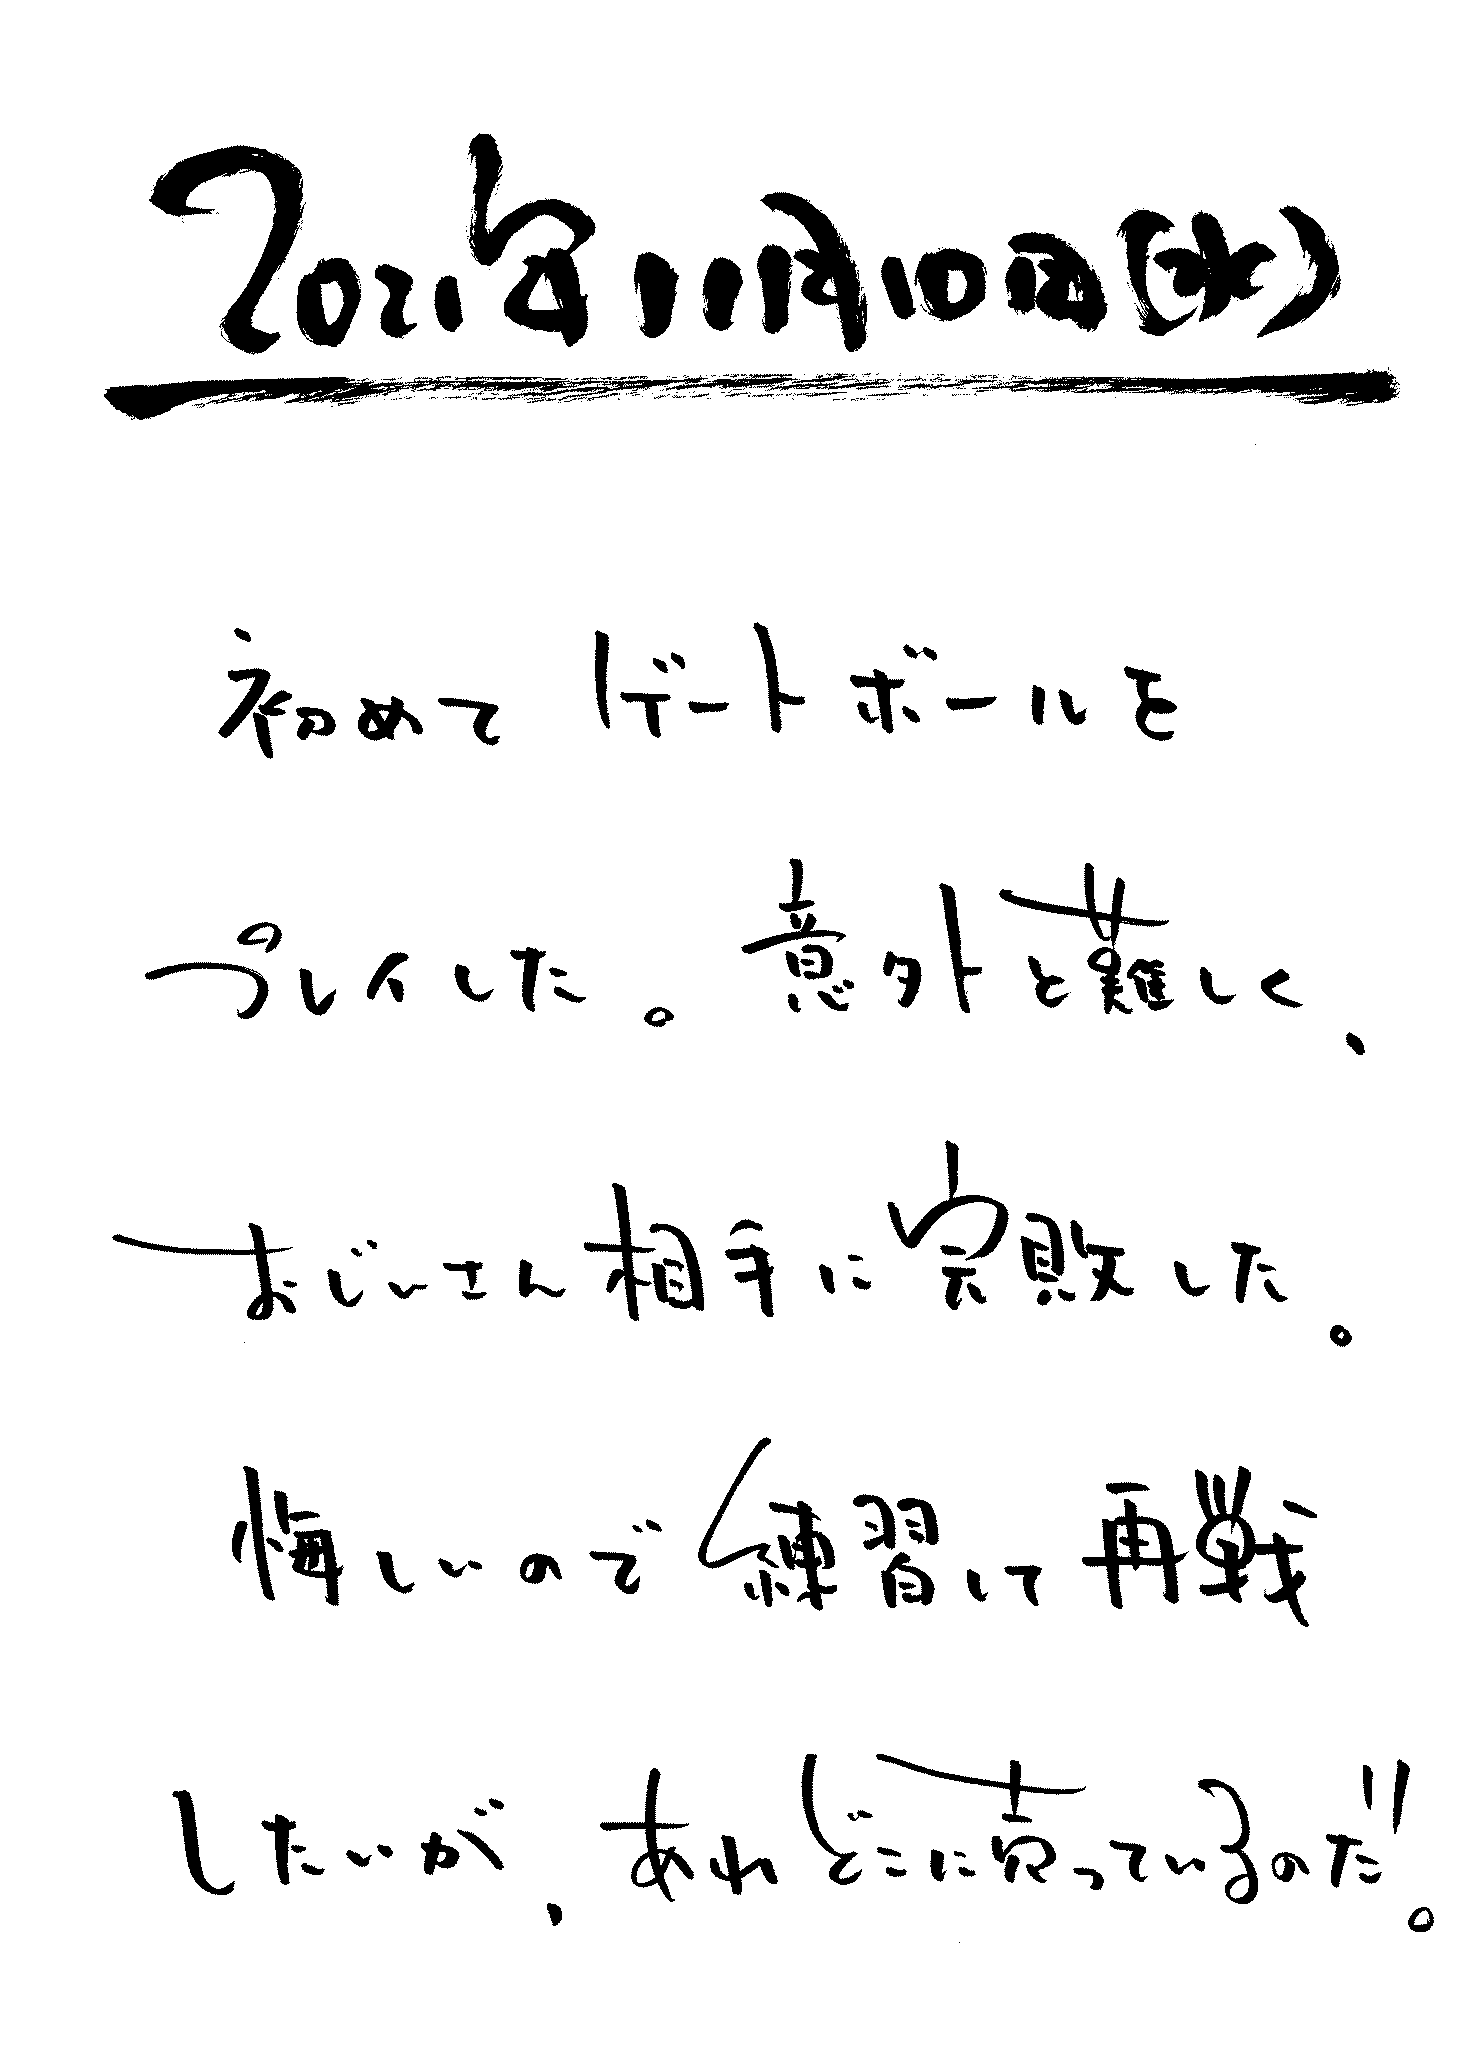 2021年11月10日(水)
初めてゲートボールを
プレイした。意外と難しく、
おじいさん相手に完敗した。
悔しいので練習して再戦
したいが、あれどこに売っているのだ。